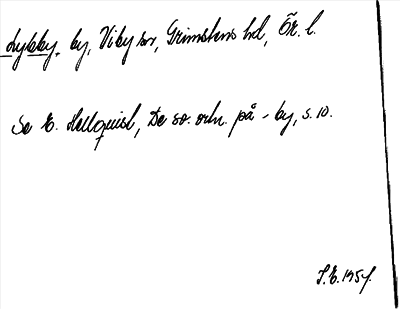 Lybby, by, Viby sn, Grimstens hd, Ör. l.
Se E. Hellquist, De sv. ortn. på -by, s. 10.
I.E. 1954.